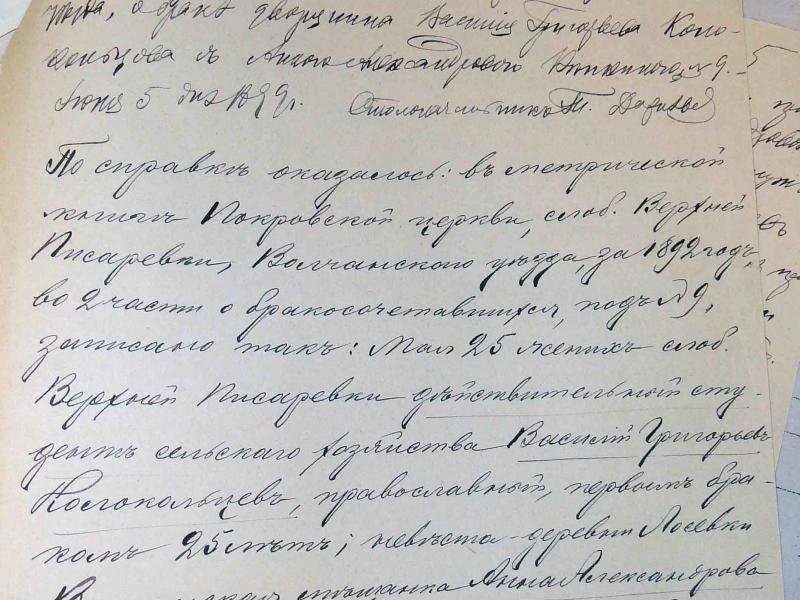 уѣзда, о бракѣ дворянина Василія Григорьева Коло-
кольцова съ Анною Александровою
Іюня 5 дня 1899 г. Столоначальникъ
По справкѣ оказалось: въ метрической
книгѣ Покровской церкви, слоб. Верхней
Писаревки, Волчанскаго уѣзда, за 1892 годъ,
во 2 части о бракосочетавшихся, подъ № 9,
записано такъ: Мая 25 женихъ слоб.
Верхней Писаревки дѣйствительный сту-
дентъ сельскаго хозяйства Василій Григорьевъ
Колокольцевъ, православный, первымъ бра-
комъ 25 лѣтъ; невѣста – деревни Лосевки
мѣщанка Анна Александрова